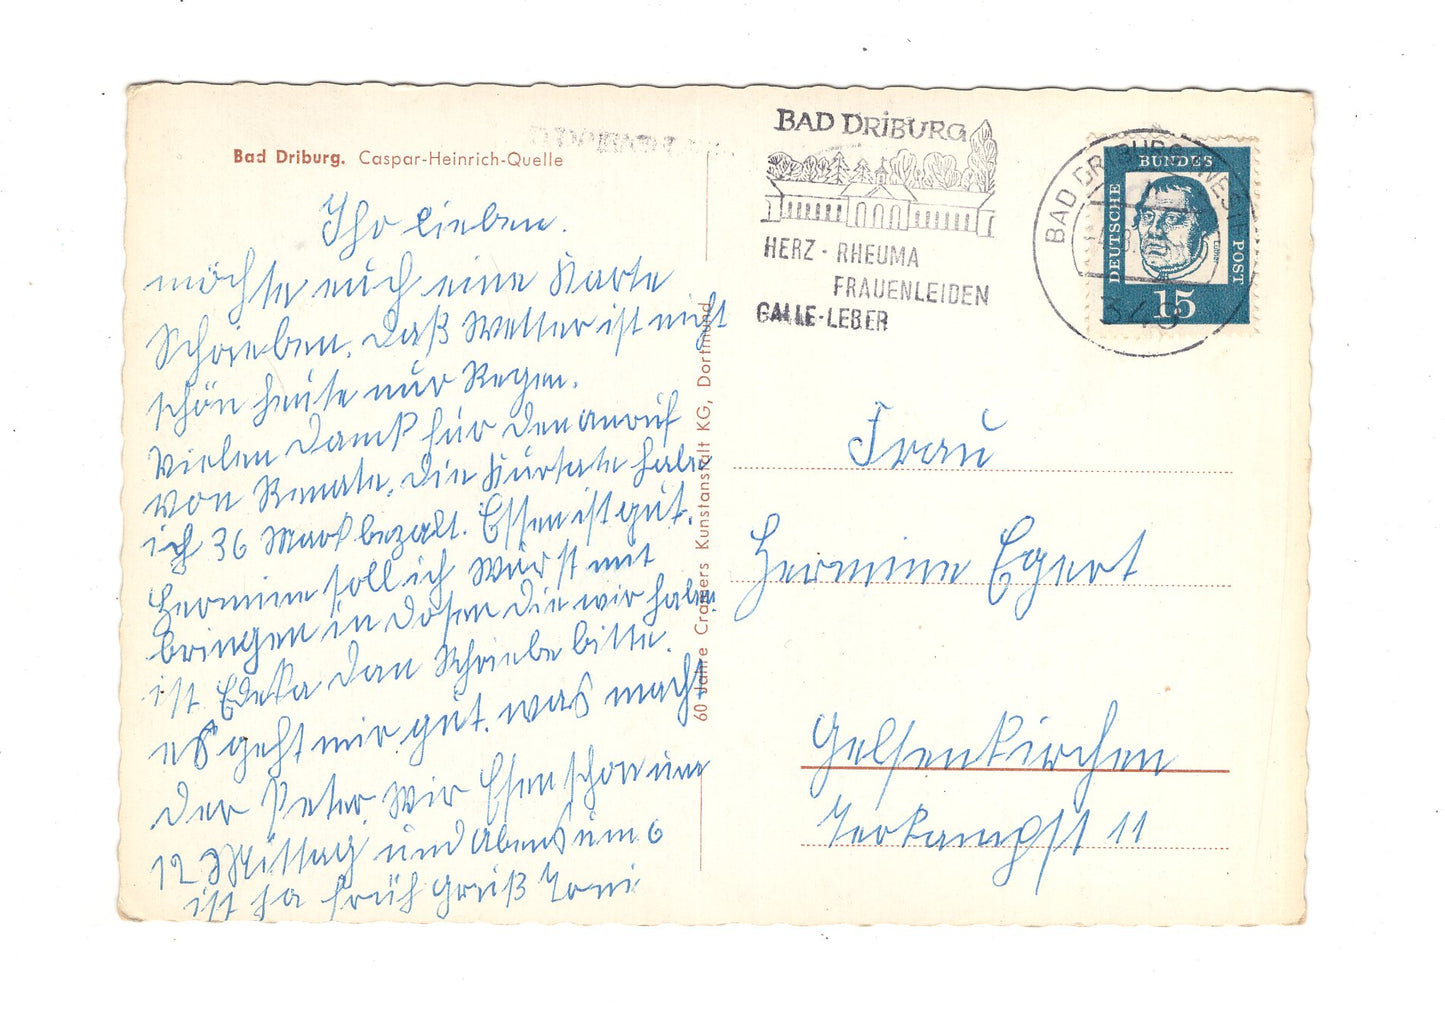 Bad Driburg. Caspar-Heinrich-Quelle
Ihr lieben.
möchte euch eine Karte
Schreiben. Daß Wetter ist nicht
schön heute nur Regen.
Vielen Dank für den anruf
von Renate. Die Kurtate habe
ich 36 Mark bezalt. Essen ist gut.
Hermine soll ich Wurst mit
bringen in Dosen die wir haben
ist Edeka dan Schreibe bitte.
es geht mir gut. was macht
der Peter. Wir Essen schon um
12 Mittag und Abens um 6
ist ja früh gruß Toni
60 Jahre Cramers Kunstanstalt KG, Dortmund
BAD DRIBURG
HERZ - RHEUMA
FRAUENLEIDEN
GALLE-LEBER
BAD DRIBURG (WESTF
349
DEUTSCHE
BUNDES
POST
15
Frau
Hermine Egert
Gelsenkirchen
Terkampst 11